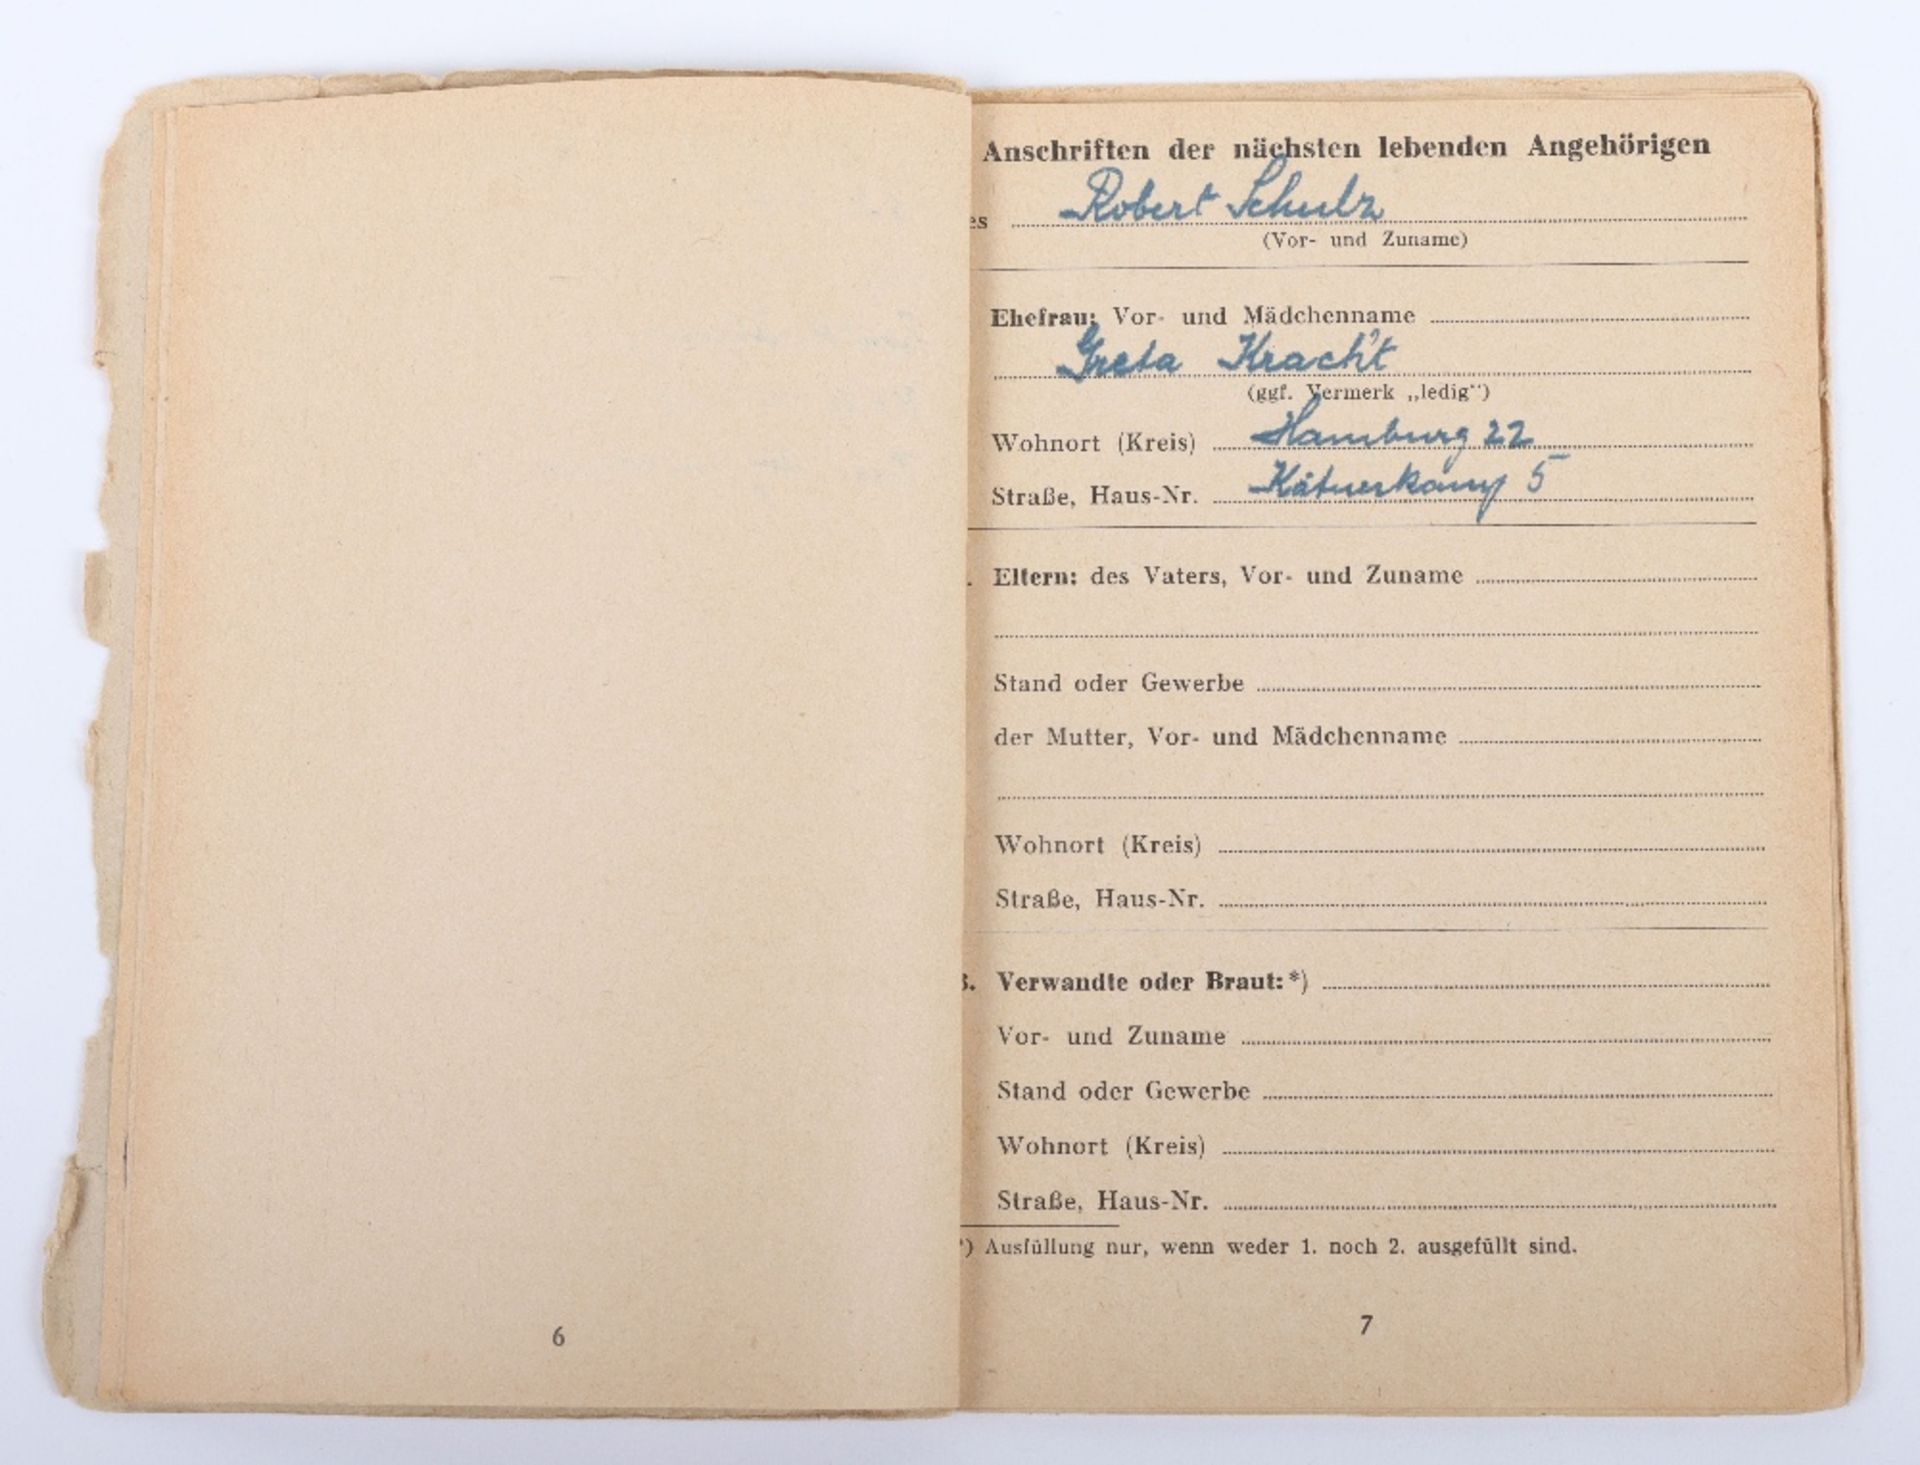 6
Anschriften der nächsten lebenden Angehörigen
es Robert Schulz
(Vor- und Zuname)
Ehefrau: Vor- und Mädchenname
Greta Kracht
(ggf. Vermerk „ledig")
Wohnort (Kreis) Hamburg 22
Straße, Haus-Nr. Kätnerkamp 5
. Eltern: des Vaters, Vor- und Zuname
Stand oder Gewerbe
der Mutter, Vor- und Mädchenname
Wohnort (Kreis)
Straße, Haus-Nr.
3. Verwandte oder Braut:*)
Vor- und Zuname
Stand oder Gewerbe
Wohnort (Kreis)
Straße, Haus-Nr.
*) Ausfüllung nur, wenn weder 1. noch 2. ausgefüllt sind.
7